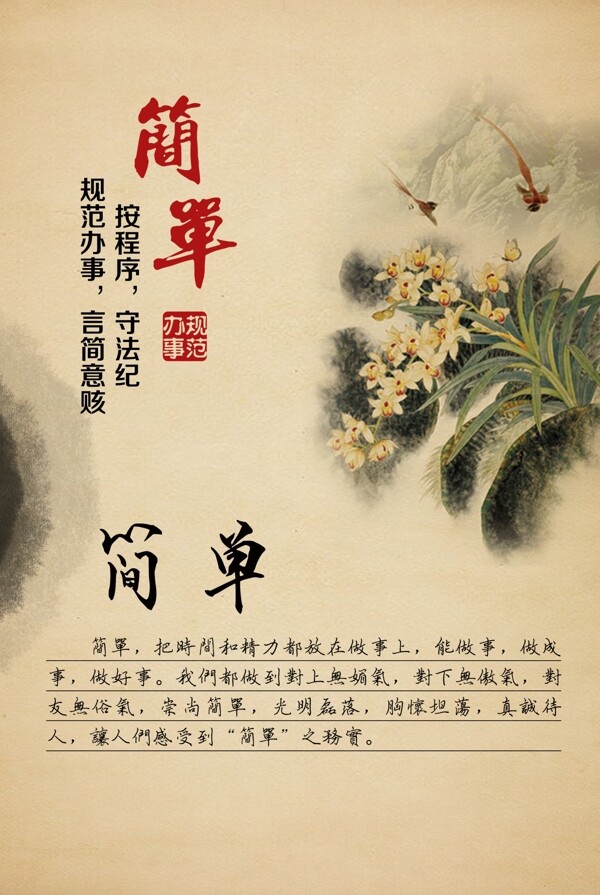 簡單
按程序，守法纪
规范办事，言简意赅
规范
办事
简单
簡單，把時間和精力都放在做事上，能做事，做成
事，做好事。我們都做到對上無媚氣，對下無傲氣，對
友無俗氣，崇尚簡單，光明磊落，胸懷坦蕩，真誠待
人，讓人們感受到“簡單”之務實。